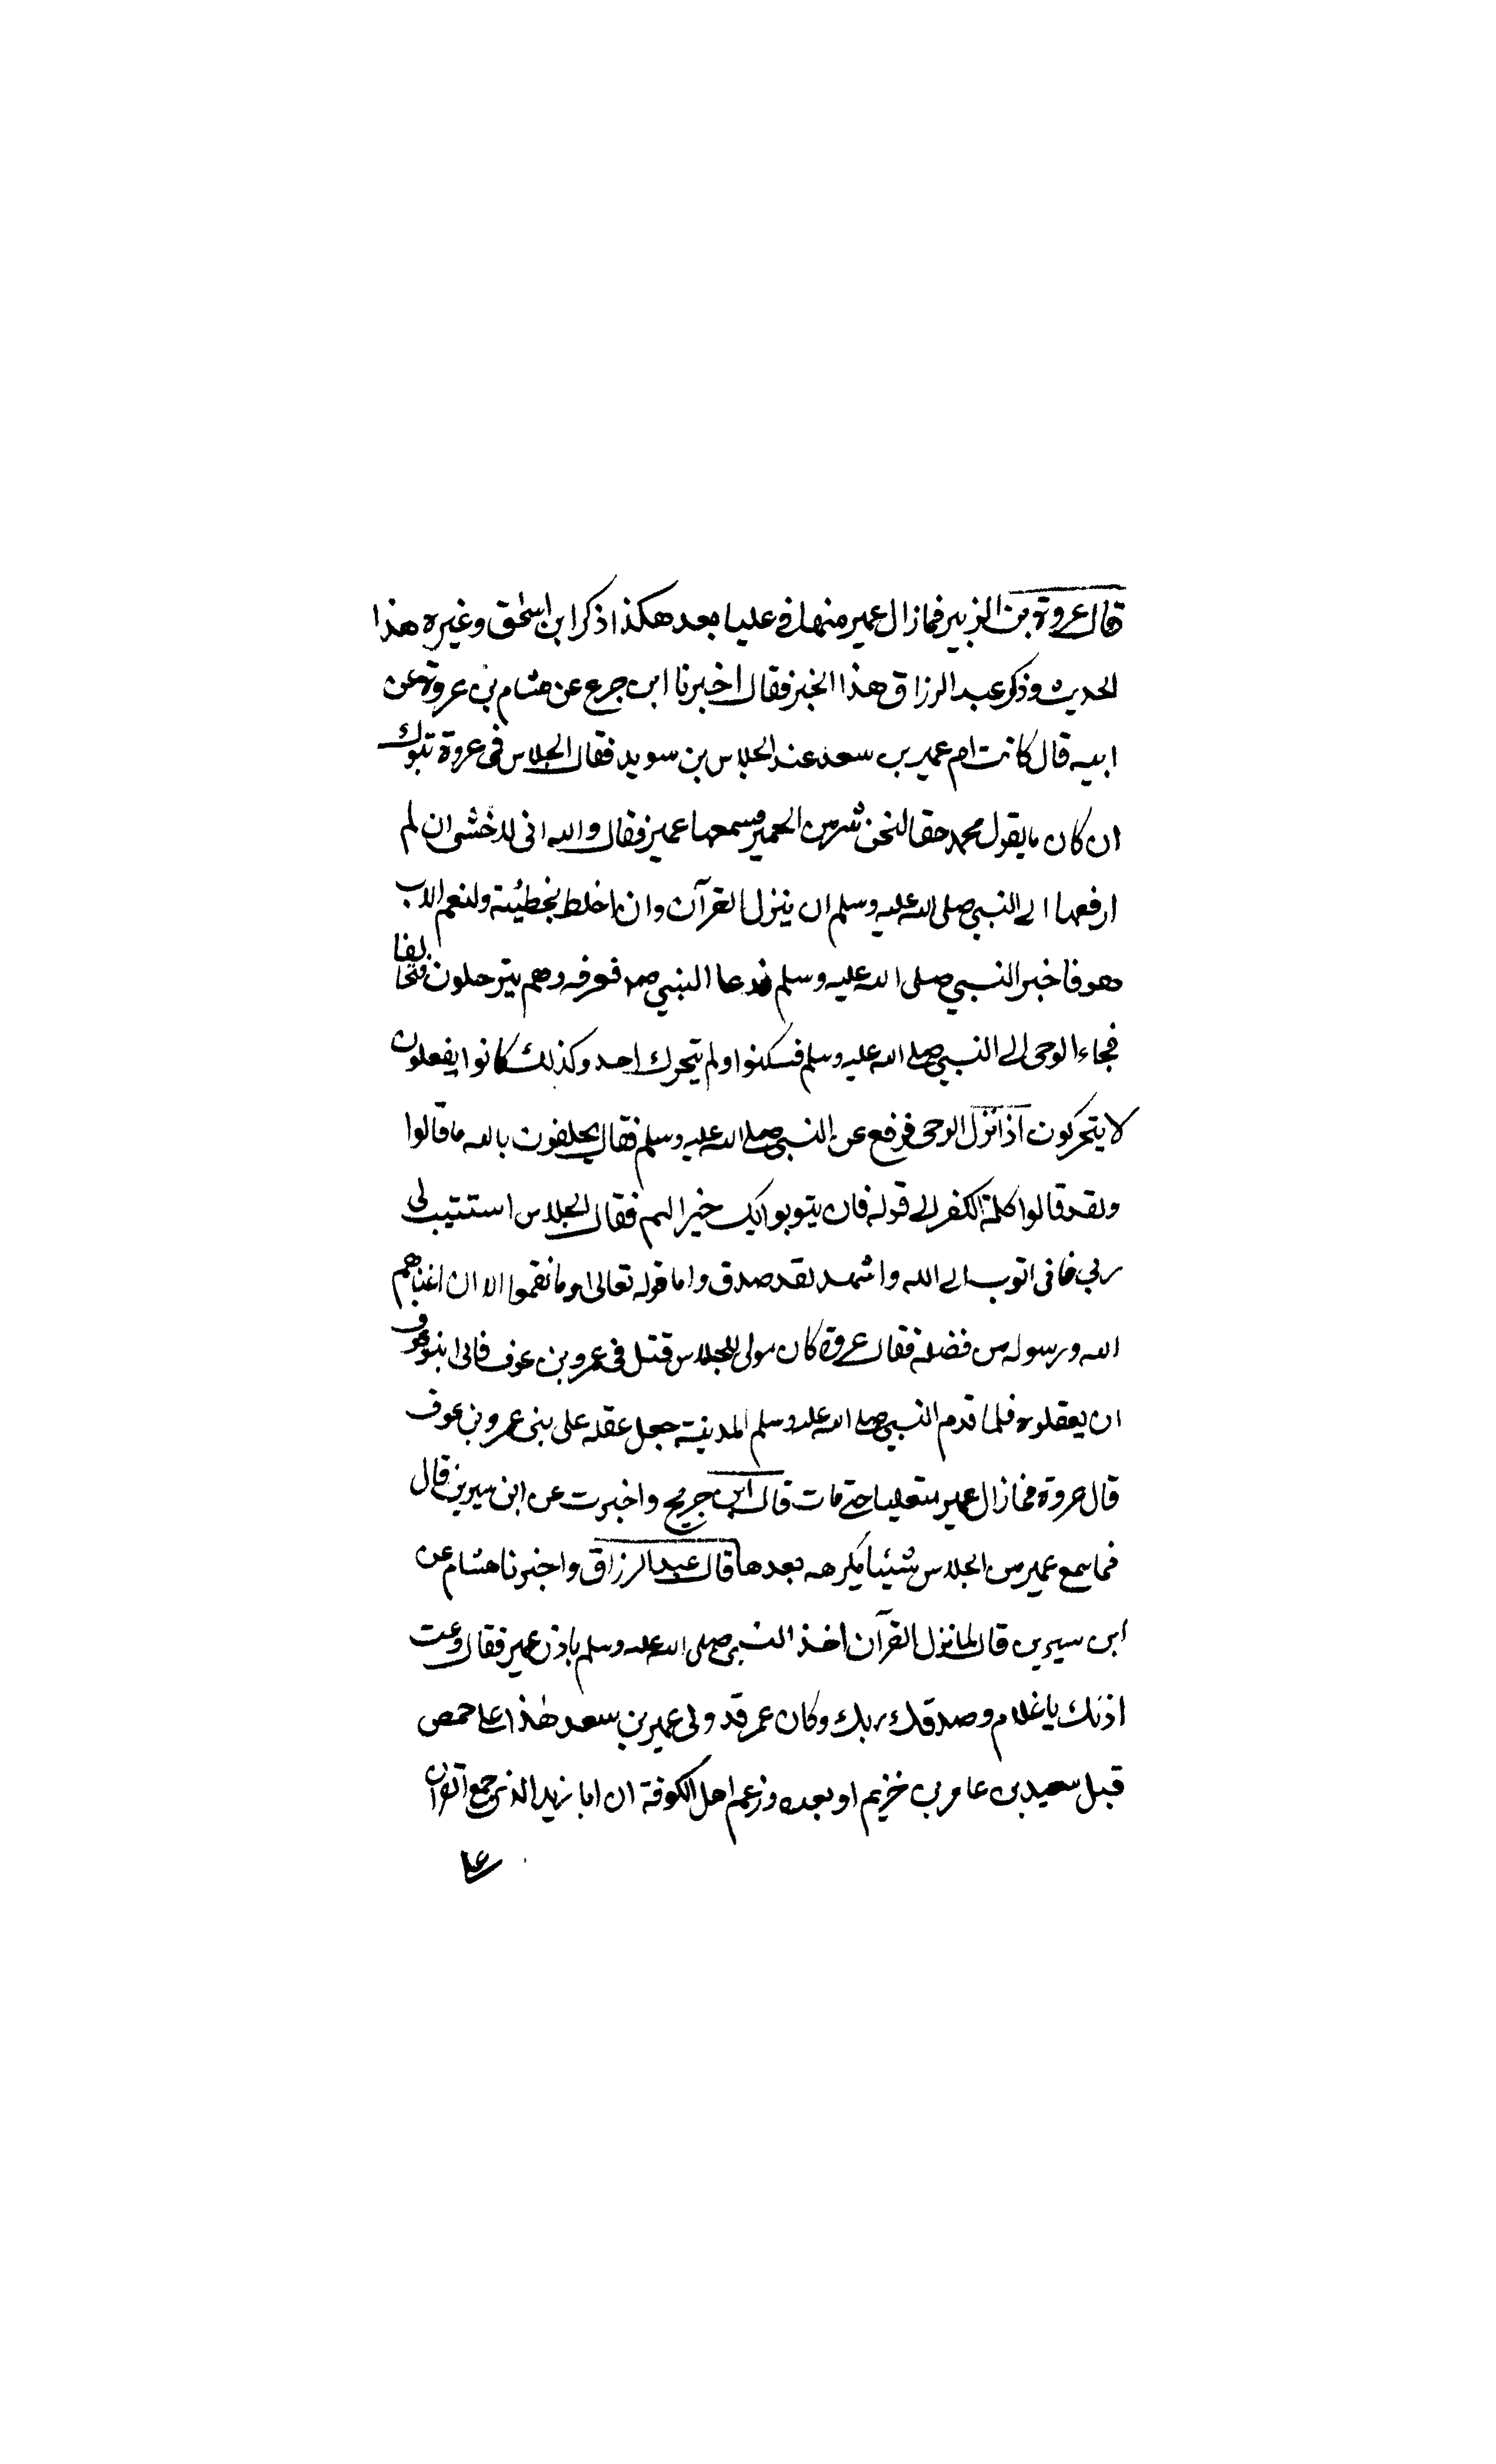 قال عروة بن الزبير فمازال عمير منها في عليا بعد هكذا ذكر ابن اسحق وغيره هذا
الحديث وذكر عبد الرزاق هذا الخبر فقال اخبرنا ابن جريج عن هشام بن عروة عن
ابيه قال كانت ام عمير بن سعد عند الجلاس بن سويد فقال الجلاس في غزوة تبوك
ان كان ما يقول محمد حقا لنحن شر من الحمير فسمعها عمير فقال والله اني لاخشى ان لم
ارفعها الى النبي صلى الله عليه وسلم ان ينزل القرآن وان اخلط بخطيئة ولنعم الاب
هو فاخبر النبي صلى الله عليه وسلم فدعا النبي صم فعرفه وهم يترحلون فتحالفا
فجاء الوحي الى النبي صلى الله عليه وسلم فسكتوا ولم يتحرك احد وكذلك كانوا يفعلون
لا يتحركون اذا نزل الوحي فرفع عن النبي صلى الله عليه وسلم فقال يحلفون بالله ما قالوا
ولقد قالوا كلمة الكفر الى قوله فان يتوبوا يك خيرا لهم فقال الجلاس استتيب لي
ربي فاني اتوب الى الله واشهد لقد صدق واما قوله تعالى وما نقموا الا ان اغناهم
الله ورسوله من فضله فقال عروة كان مولى للجلاس قتل في عمرو بن عوف فابى بنو عوف
ان يعقلوه فلما قدم النبي صلى الله عليه وسلم المدينة جعل عقله على بني عمرو بن عوف
قال عروة فمازال عمير متعليا حتى مات قال ابن جريج واخبرت عن ابن سيرين قال
فما سمع عمير من الجلاس شيئا يكرهه بعدها قال عبد الرزاق واخبرنا هشام عن
ابن سيرين قال لما نزل القرآن اخذ النبي صلى الله عليه وسلم باذن عمير فقال وعت
اذنك يا غلام وصدقك ربك وكان عمر قد ولى عمير بن سعد هذا على حمص
قبل سعيد بن عامر بن خزيم او بعده وزعم اهل الكوفة ان ابا زيد الذي جمع القرآن